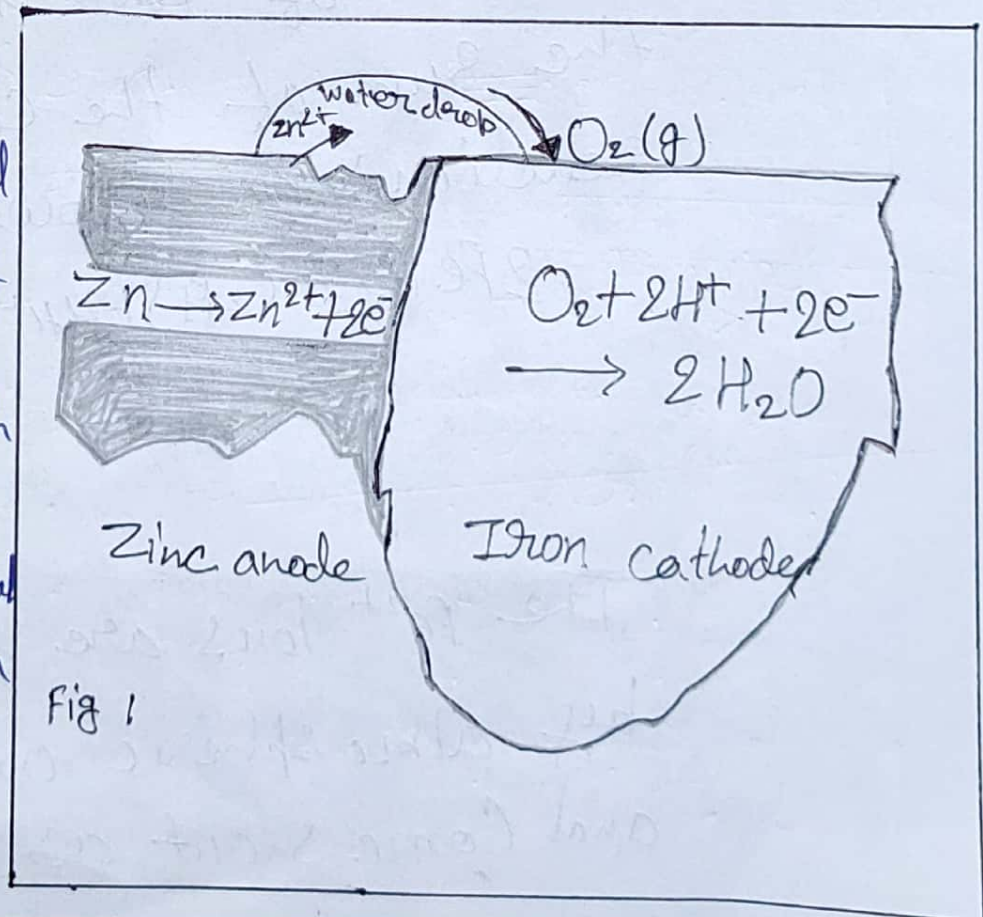 water drop
Zn²⁺
O₂(g)
Zn → Zn²⁺ + 2e⁻
O₂ + 2H⁺ + 2e⁻
→ 2H₂O
Zinc anode
Iron cathode
Fig 1